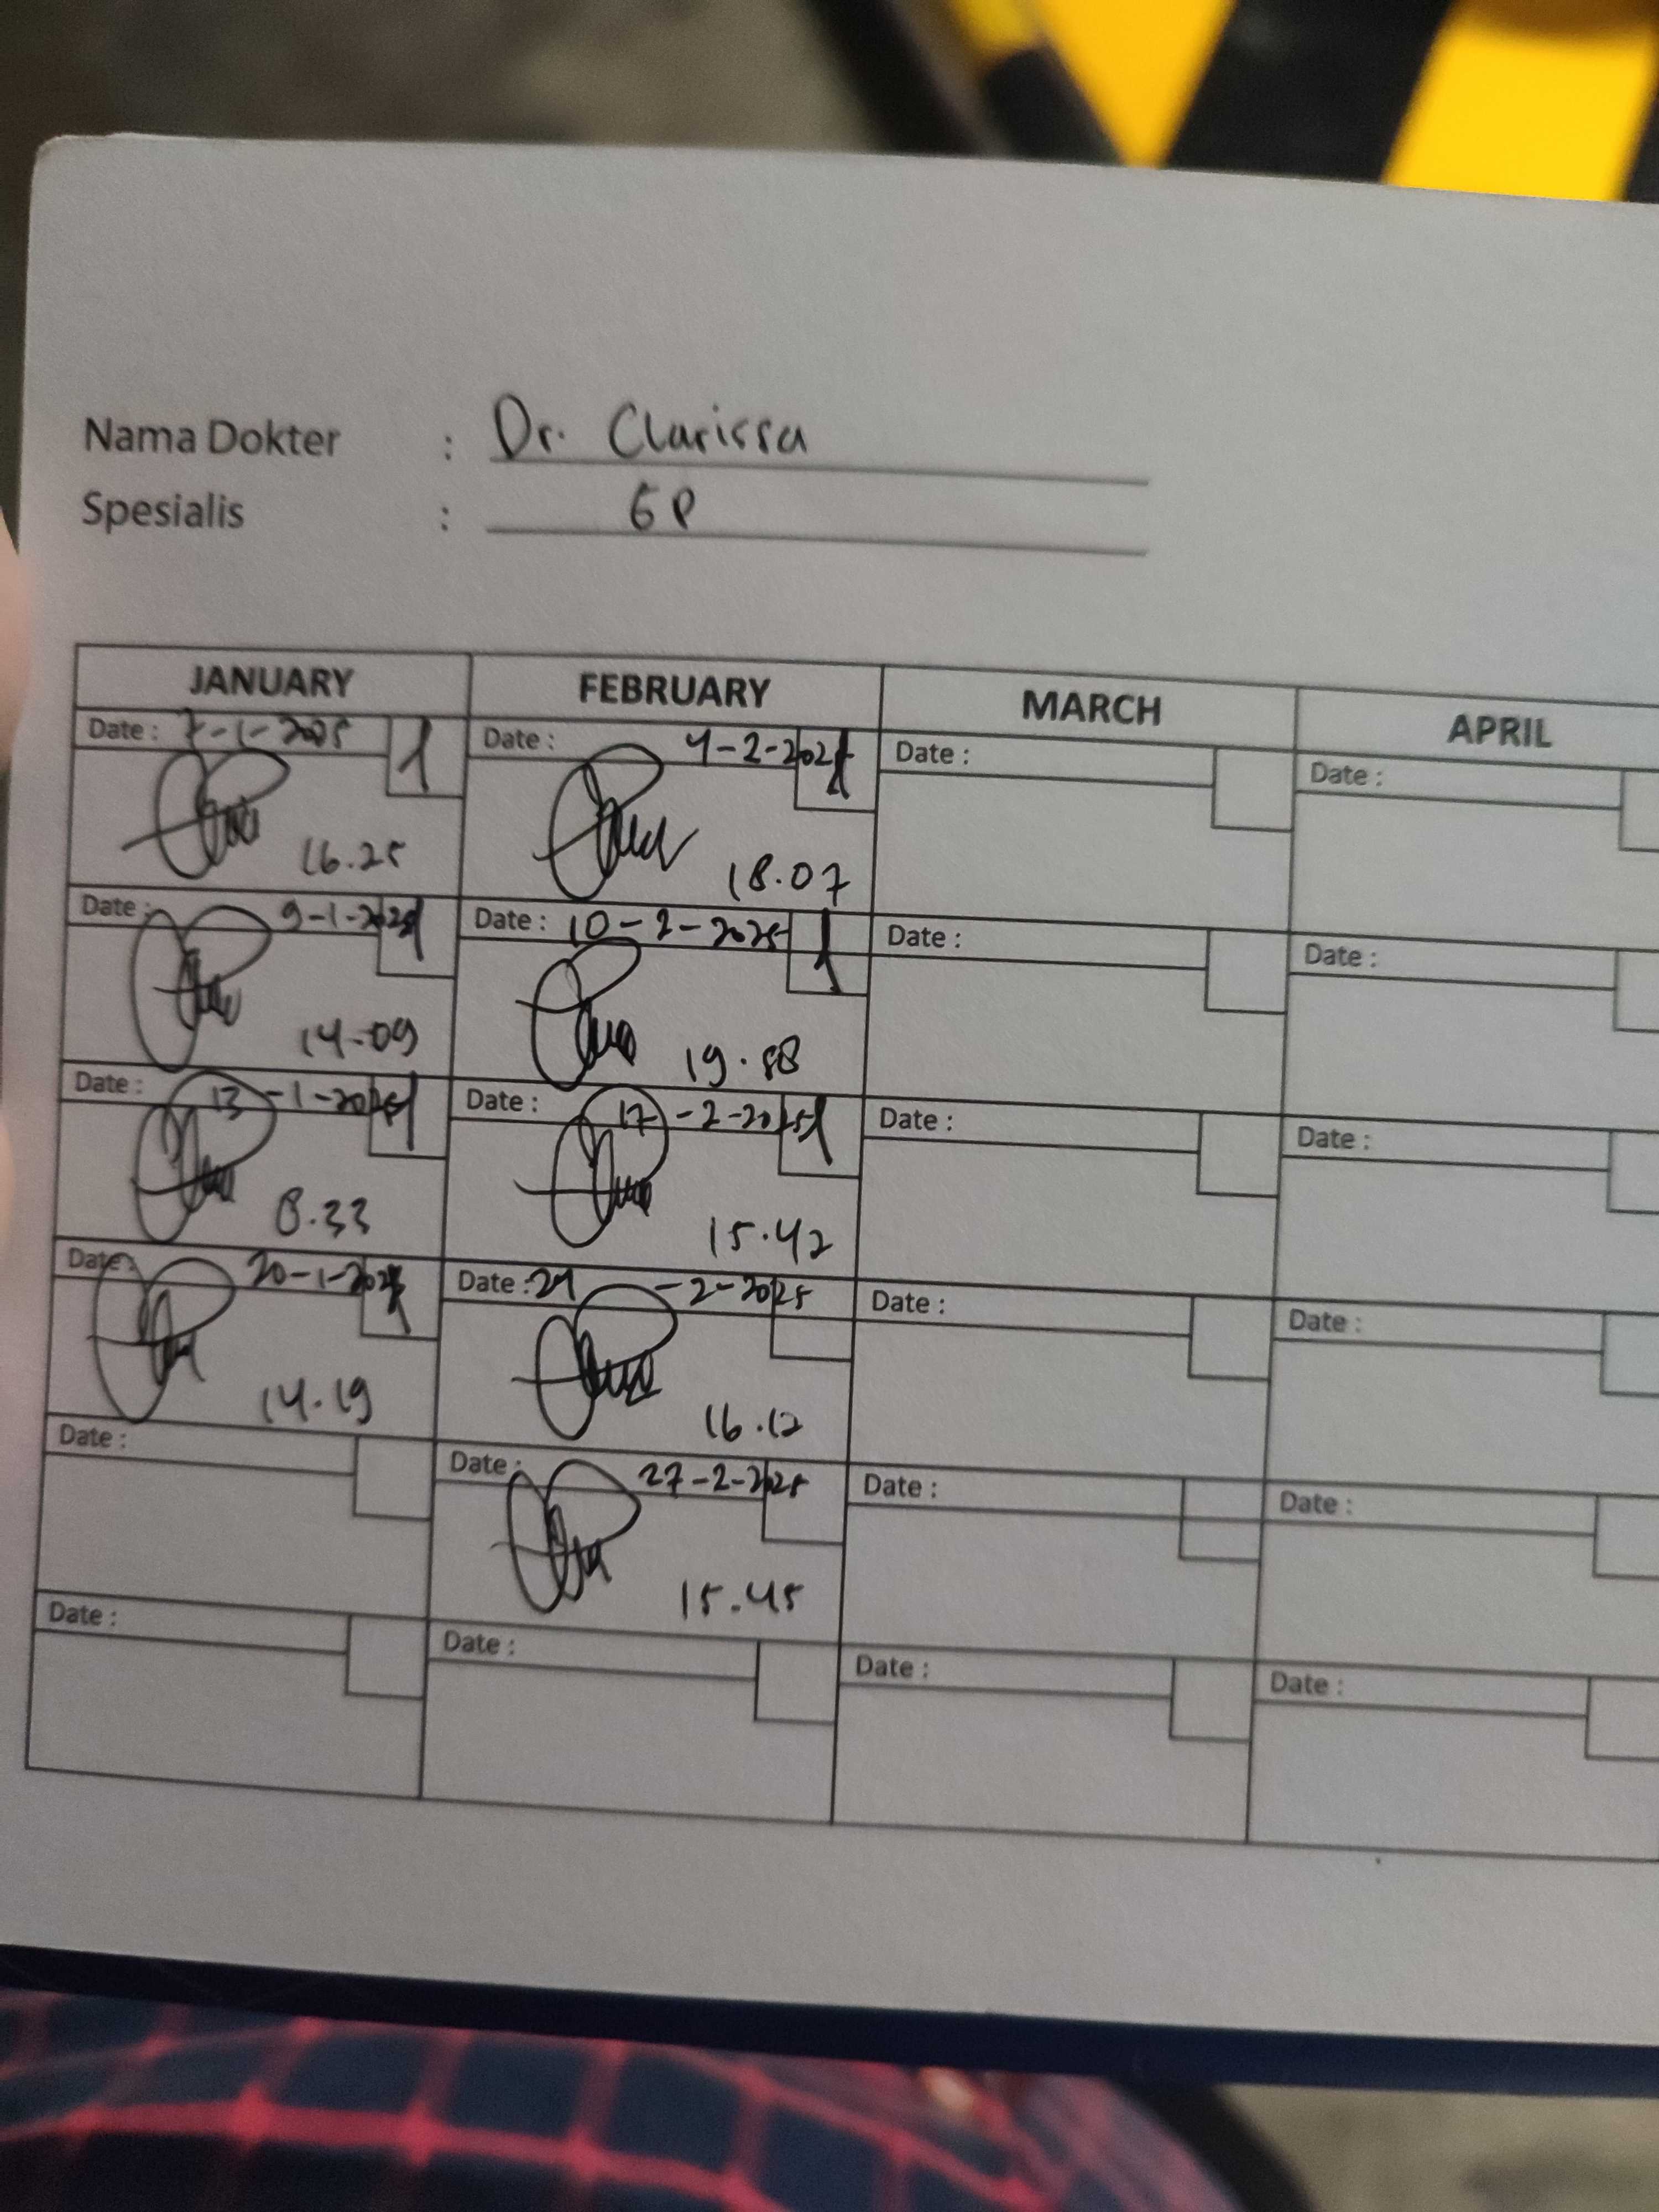 Nama Dokter : Dr. Clarissa
Spesialis : GP
JANUARY FEBRUARY MARCH APRIL
Date : 7-1-2025 Date : 4-2-2025 Date : Date :
16.25 18.07
Date : 9-1-2025 Date : 10-2-2025 Date : Date :
14.09 19.58
Date : 13-1-2025 Date : 17-2-2025 Date : Date :
8.33 15.42
Date : 20-1-2025 Date : 24-2-2025 Date : Date :
14.19 16.12
Date : Date : 27-2-2025 Date : Date :
15.45
Date : Date : Date : Date :